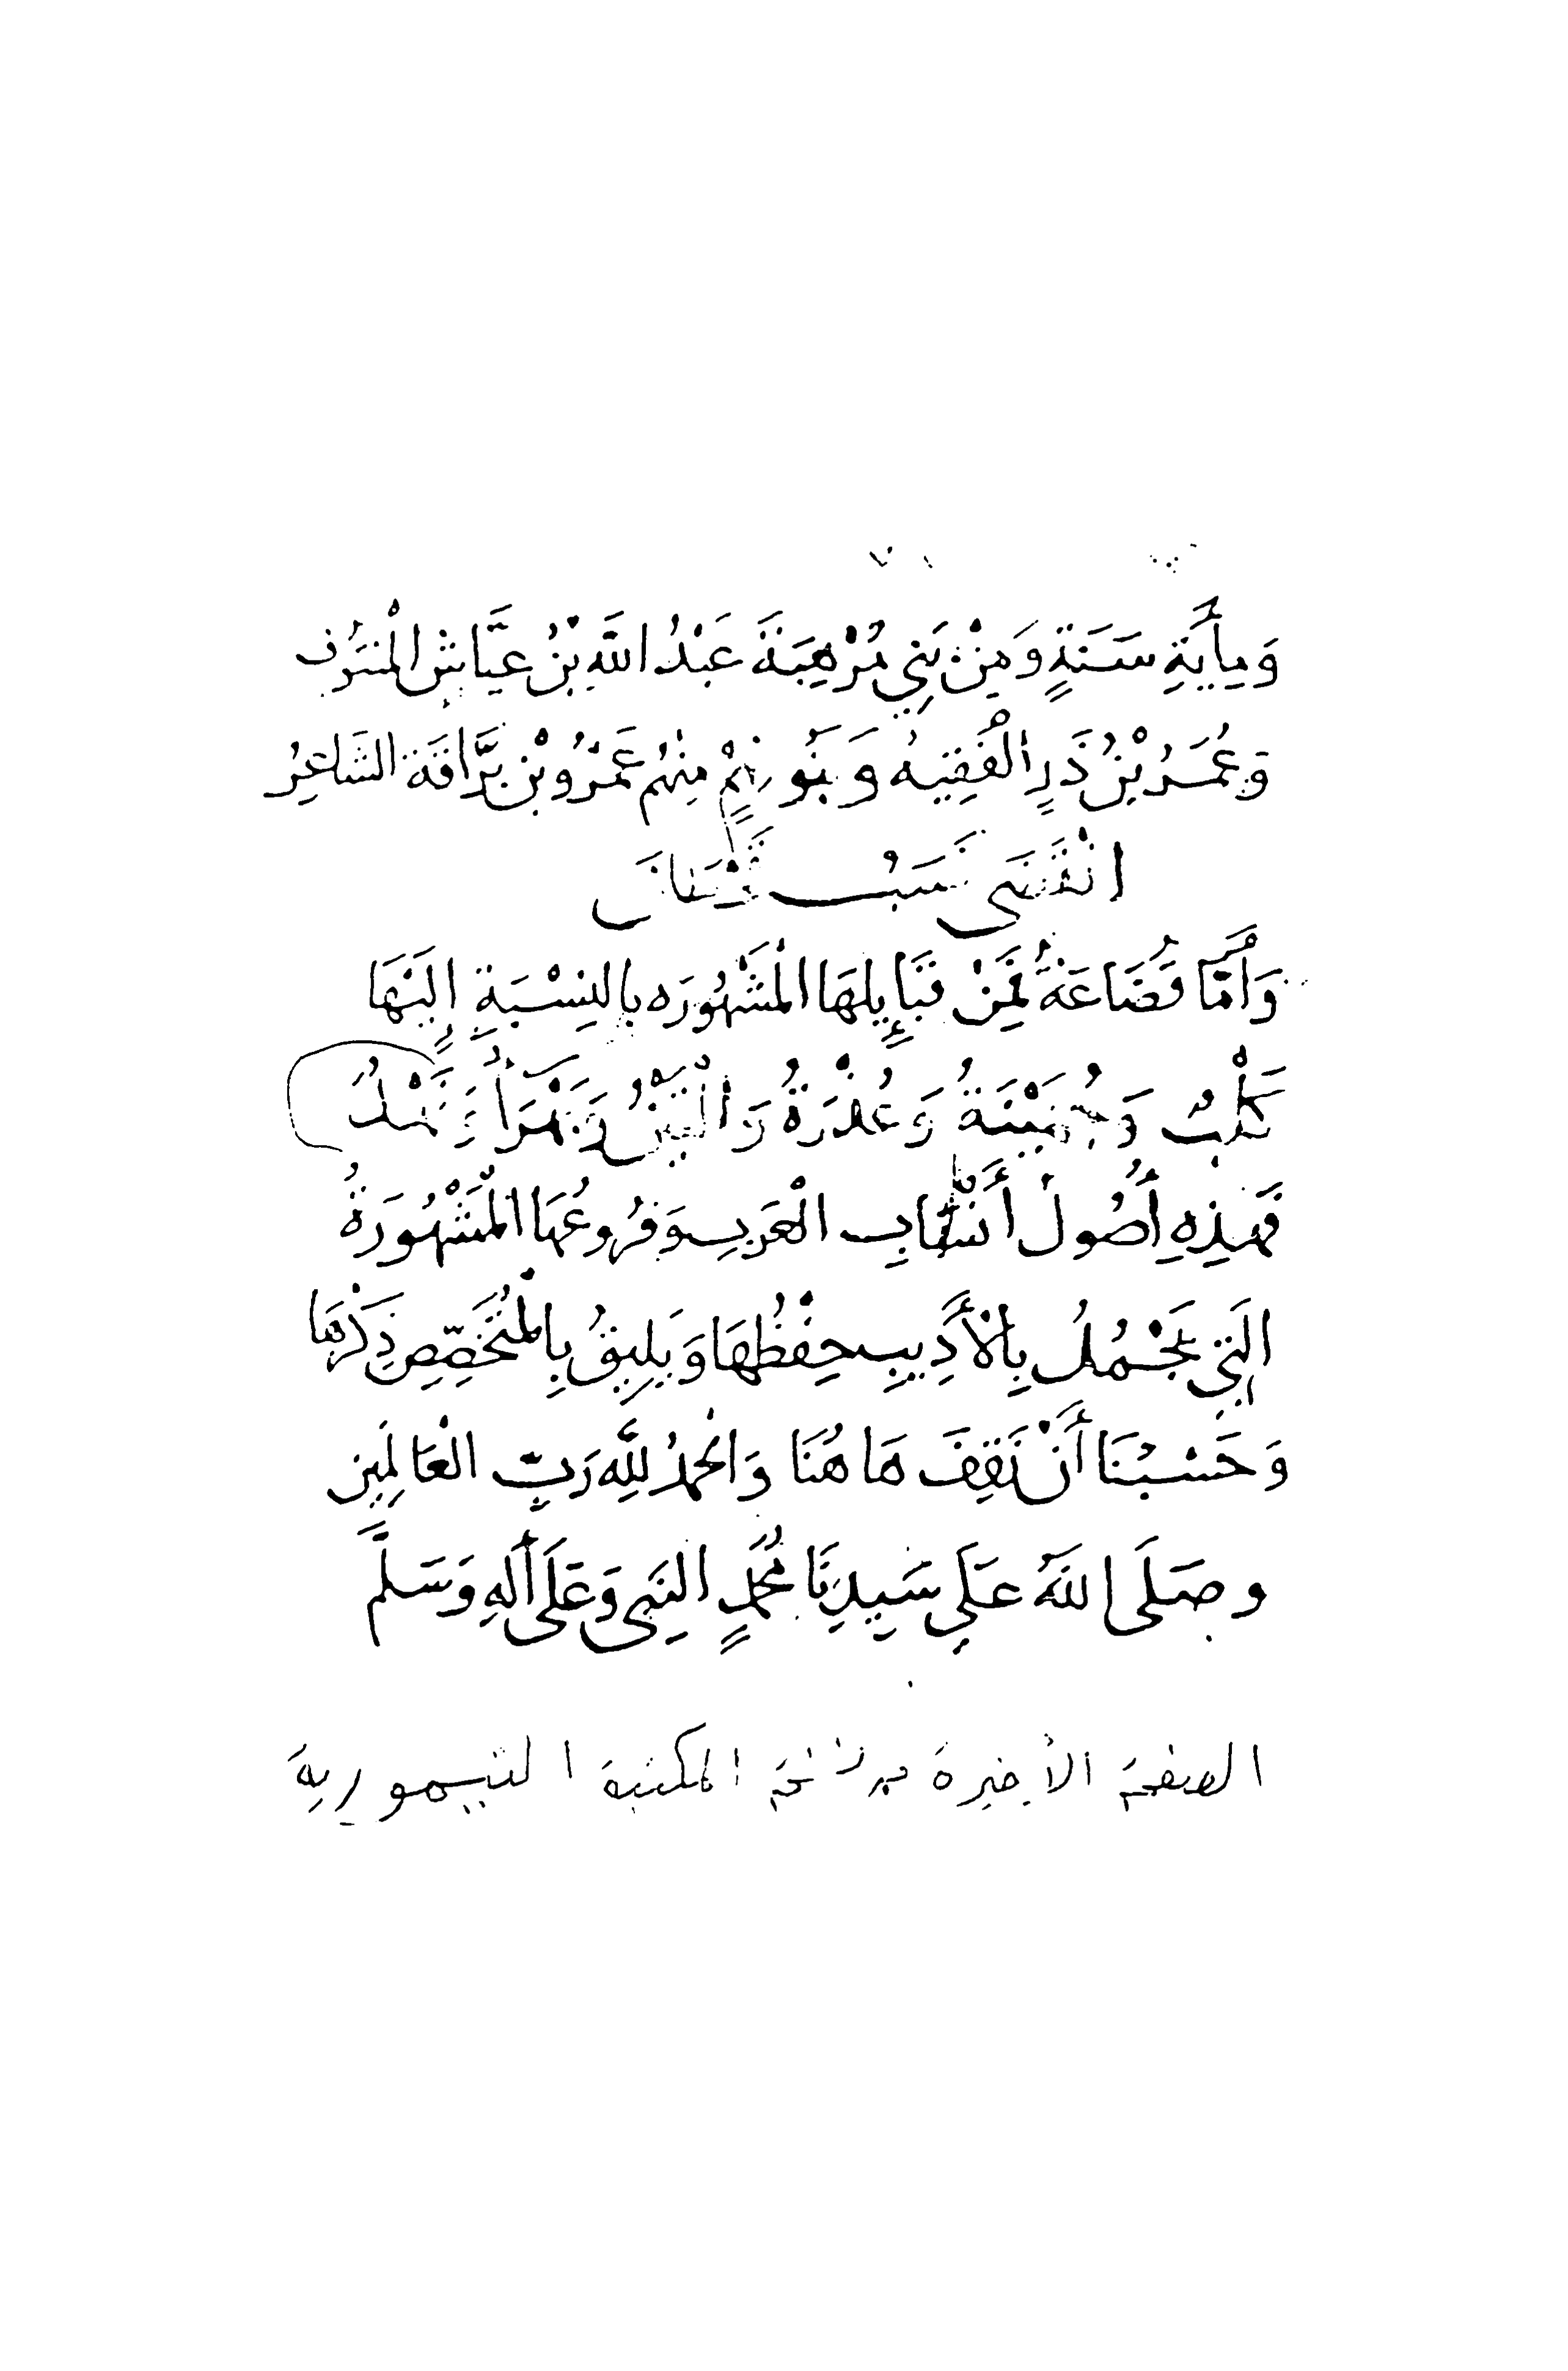 وَمِأَيَةِ سَنَةٍ وَمِنْ بَنِي مُرْهِبَةَ عَبْدُ اللَّهِ بْنُ عَيَّاشِ الْمَنتُوف
وَعُمَرُ بْنُ ذَرٍ الْفَقِيهُ وَبَنُو نِهْمٍ مِنْهُم عَمْرُو بْن بَرَّاقَةَ الشَاعِرُ
انْقَضَى نَسَبُ
وَأَمَّا قُضَاعَةُ فَمِنْ قَبَإِيلِهَا الْمَشْهُورَه بِالنِسْبَةِ إِلَيْهَا
كَلْبُ وَجُهَيْنَةُ وَعُذْرَةُ وَالْقَيْنُ وَبَهْرَأُ وَنَهْدُ
فَهَذِهِ أُصُولُ أَنْسَابِ الْعَرَبِ وَفرُوعُهَا الْمَشْهُورَةُ
الَتِي يَجْمُلُ بِالأَدِيبِ حِفْظُهَا وَيَلِيقُ بِالْمُتَخَصِّصِ ذِكْرُهَا
وَحَسْبُنَا أَنْ نَقِفَ هَا هُنَا وَالحمدُ لِلَّهِ رَبِّ العَالَمِين
وصَلَى اللَّهُ عَلَي سَيِدِنَا مُحَمَّدٍ النَبِي وَعَلَى أَلِهِ وَسَلَّم
الصفحة الأخيرة من نسخة المكتبة التيمورية